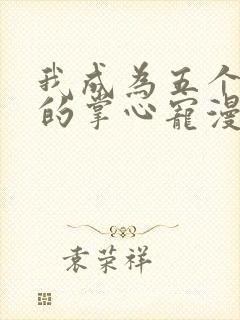 我成为五个
的掌心宠漫
袁荣祥